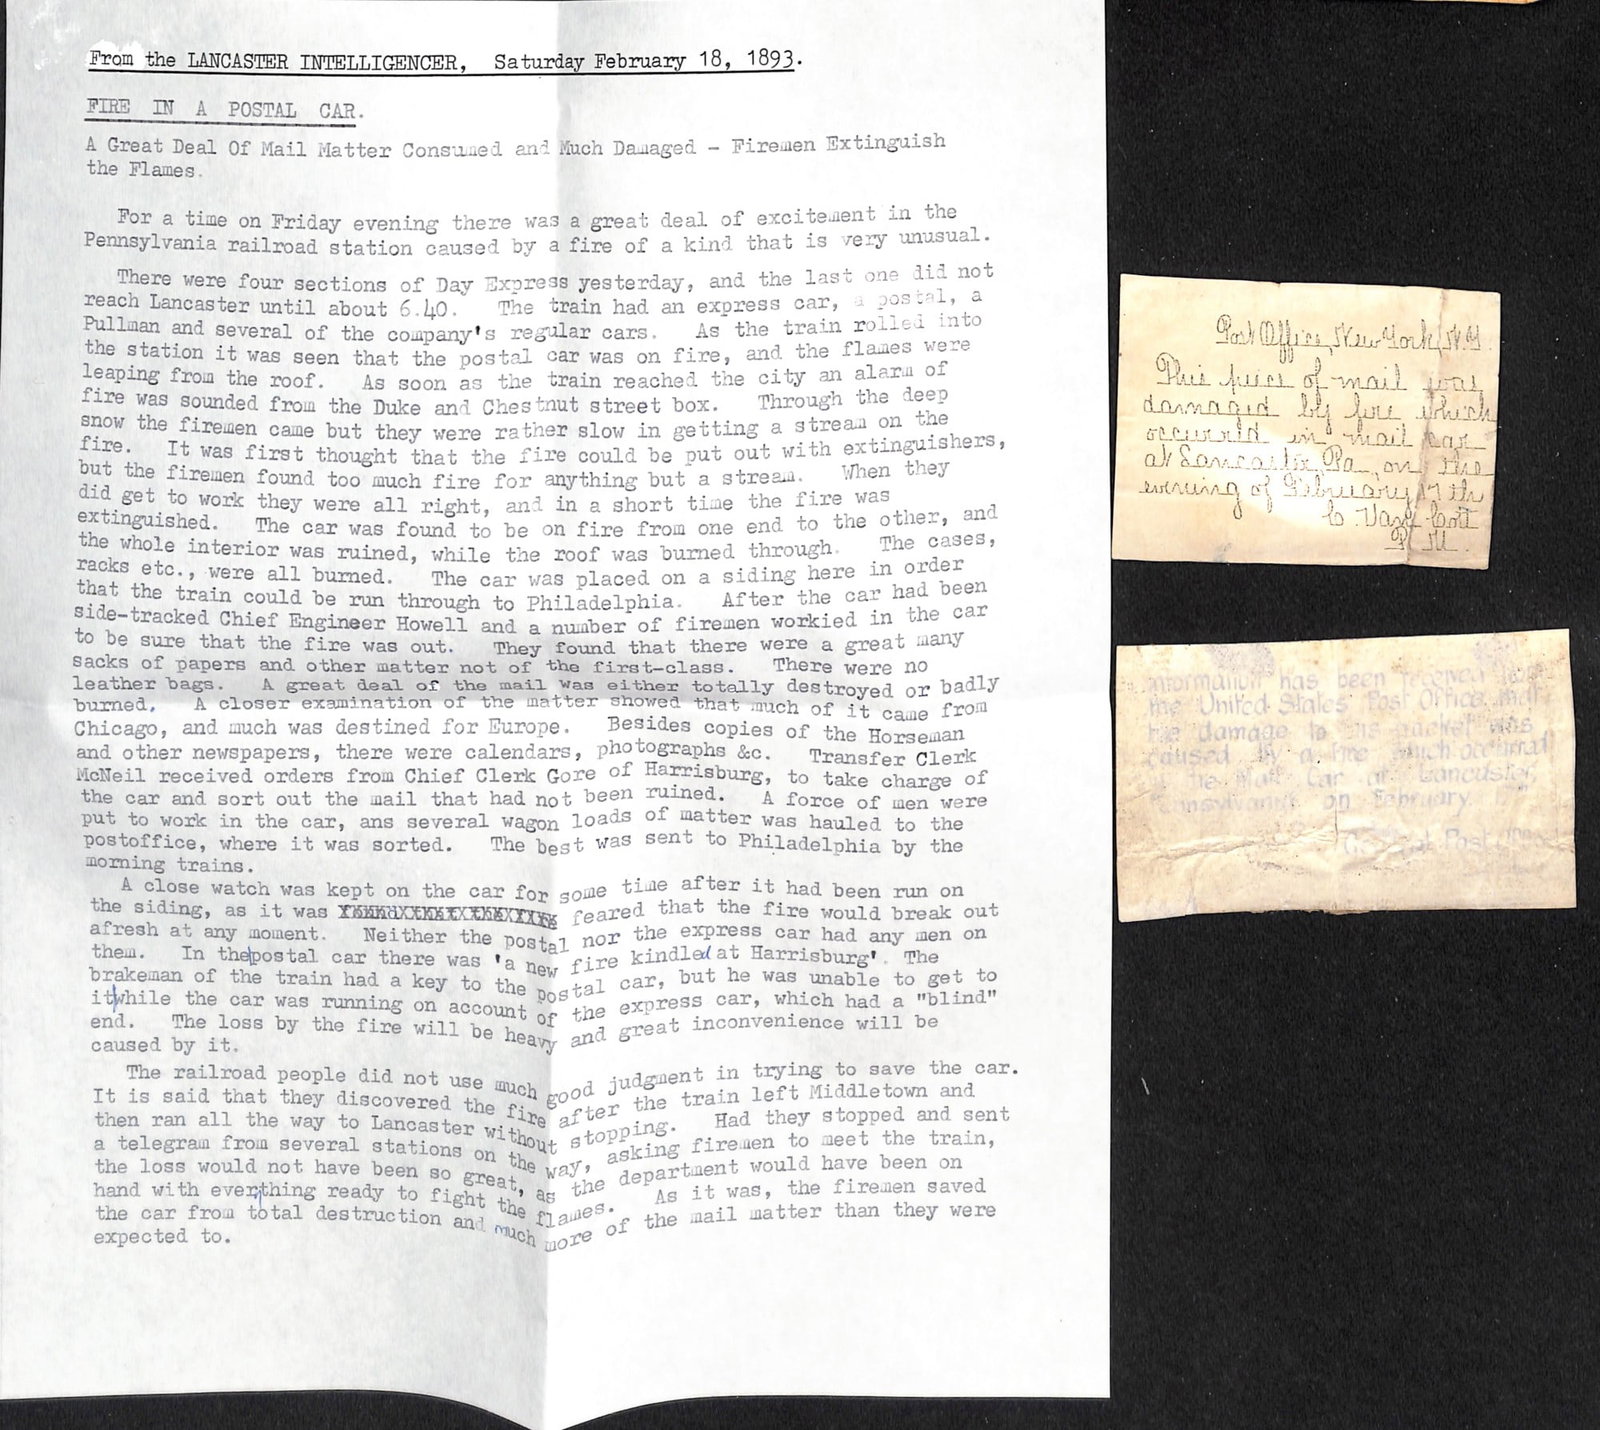 From the LANCASTER INTELLIGENCER, Saturday February 18, 1893.
FIRE IN A POSTAL CAR.
A Great Deal Of Mail Matter Consumed and Much Damaged - Firemen Extinguish
the Flames.
For a time on Friday evening there was a great deal of excitement in the
Pennsylvania railroad station caused by a fire of a kind that is very unusual.
There were four sections of Day Express yesterday, and the last one did not
reach Lancaster until about 6.40. The train had an express car, a postal, a
Pullman and several of the company's regular cars. As the train rolled into
the station it was seen that the postal car was on fire, and the flames were
leaping from the roof. As soon as the train reached the city an alarm of
fire was sounded from the Duke and Chestnut street box. Through the deep
snow the firemen came but they were rather slow in getting a stream on the
fire. It was first thought that the fire could be put out with extinguishers,
but the firemen found too much fire for anything but a stream. When they
did get to work they were all right, and in a short time the fire was
extinguished. The car was found to be on fire from one end to the other, and
the whole interior was ruined, while the roof was burned through. The cases,
racks etc., were all burned. The car was placed on a siding here in order
that the train could be run through to Philadelphia. After the car had been
side-tracked Chief Engineer Howell and a number of firemen workied in the car
to be sure that the fire was out. They found that there were a great many
sacks of papers and other matter not of the first-class. There were no
leather bags. A great deal of the mail was either totally destroyed or badly
burned. A closer examination of the matter showed that much of it came from
Chicago, and much was destined for Europe. Besides copies of the Horseman
and other newspapers, there were calendars, photographs &c. Transfer Clerk
McNeil received orders from Chief Clerk Gore of Harrisburg, to take charge of
the car and sort out the mail that had not been ruined. A force of men were
put to work in the car, ans several wagon loads of matter was hauled to the
postoffice, where it was sorted. The best was sent to Philadelphia by the
morning trains.
A close watch was kept on the car for some time after it had been run on
the siding, as it was feared that the fire would break out
afresh at any moment. Neither the postal nor the express car had any men on
them. In the postal car there was 'a new fire kindled at Harrisburg'. The
brakeman of the train had a key to the postal car, but he was unable to get to
it while the car was running on account of the express car, which had a "blind"
end. The loss by the fire will be heavy and great inconvenience will be
caused by it.
The railroad people did not use much good judgment in trying to save the car.
It is said that they discovered the fire after the train left Middletown and
then ran all the way to Lancaster without stopping. Had they stopped and sent
a telegram from several stations on the way, asking firemen to meet the train,
the loss would not have been so great, as the department would have been on
hand with everything ready to fight the flames. As it was, the firemen saved
the car from total destruction and much more of the mail matter than they were
expected to.
Post Office, New York, N.Y.
This piece of mail was
damaged by fire which
occurred in mail car
at Lancaster, Pa, on the
evening of February 17th
C Van Cott
P. M.
Information has been received from
the United States Post Office that
the damage to this packet was
caused by a fire which occurred
the Mail Car at Lancaster,
Pennsylvania on February 17
Post